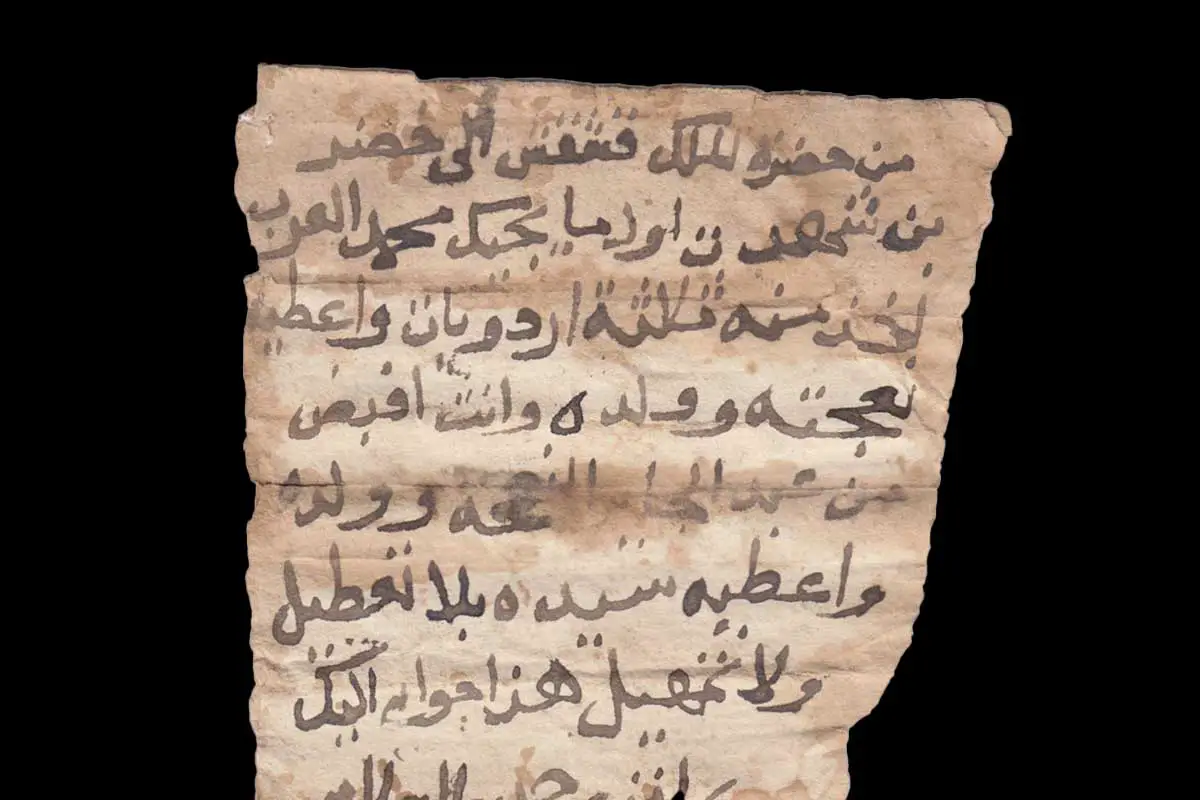 من حضرة الملك قشقش الى خضر
بن شهدت اول ما يجيك محمد العرب
تاخذ منه ثلاثة اردويات واعطيه
نعجته وولده وانت اقبض
من عبد الجابر النعجة وولده
واعطيه سيده بلا تعطيل
ولا تمهيل هذا جواب اليك